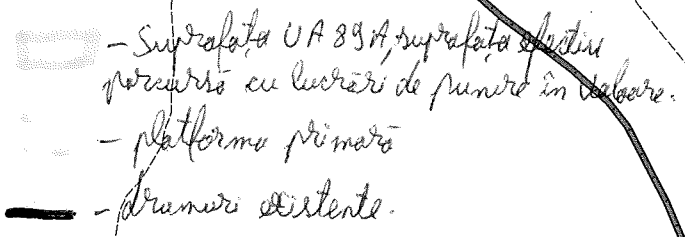 - Suprafața UA 89A, suprafața efectiv
parcursă cu lucrări de punere în valoare.
- platforma primară
- drumuri existente.